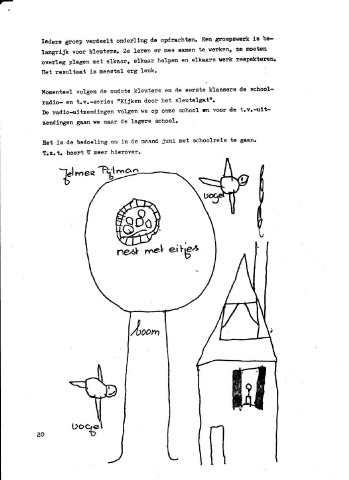 Iedere groep verdeelt onderling de opdrachten. Een groepswerk is be-
langrijk voor kleuters. Ze leren er mee samen te werken, ze moeten
overleg plegen met elkaar, elkaar helpen en elkaars werk respekteren.
Het resultaat is meestal erg leuk.
Momenteel volgen de oudste kleuters en de eerste klassers de school-
radio- en t.v.-serie: "Kijken door het sleutelgat".
De radio-uitzendingen volgen we op onze school en voor de t.v.-uit-
zendingen gaan we naar de lagere school.
Het is de bedoeling om in de maand juni met schoolreis te gaan.
t.z.t. hoort U meer hierover.
Jelmer Pijlman
vogel
nest met eitjes
boom
vogel
20